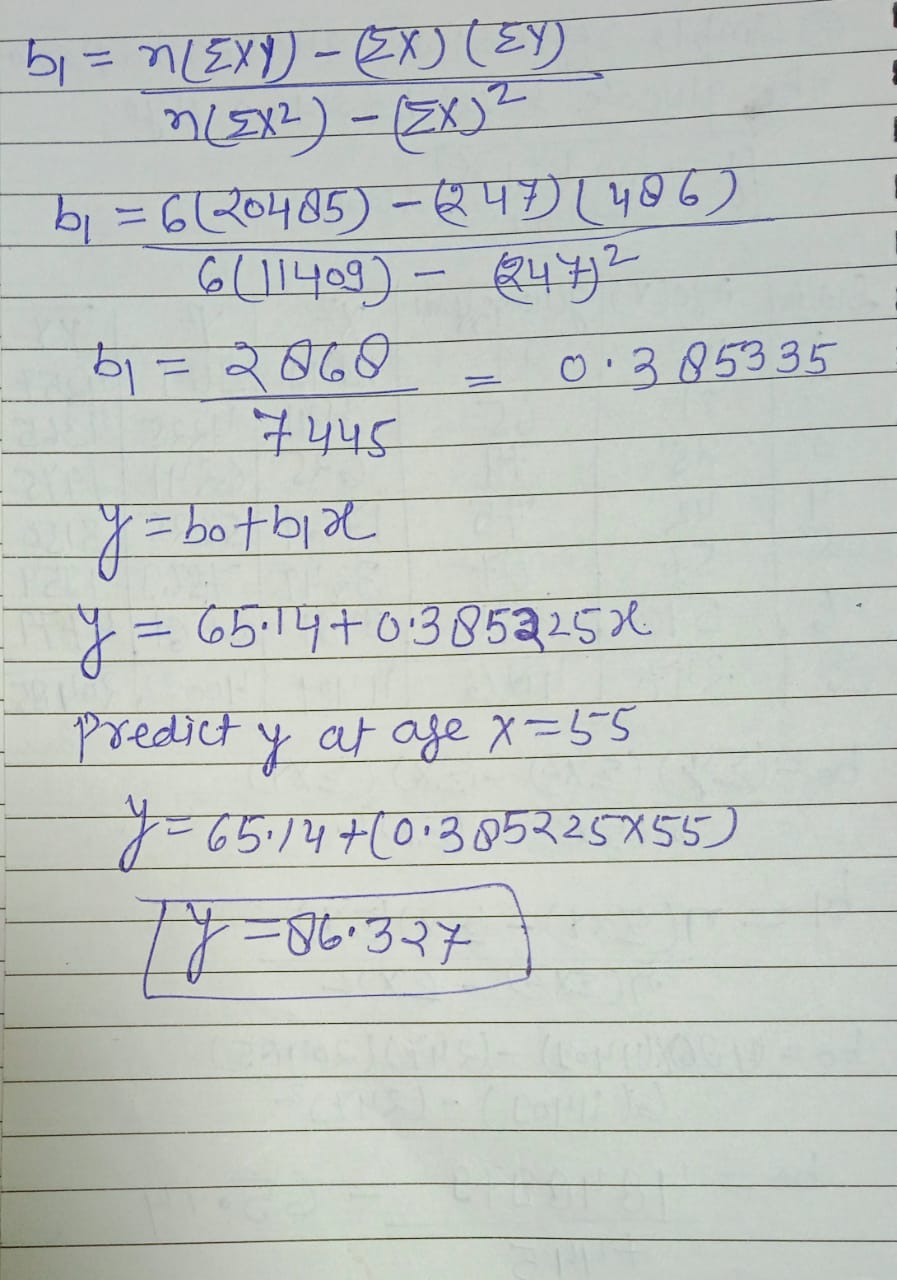 b1 = n(ΣXY) - (ΣX) (ΣY)
n(ΣX2) - (ΣX)2
b1 = 6(20485) - (247) (486)
6(11409) - (247)2
b1 = 2868 = 0.385335
7445
y = b0+b1x
y = 65.14+0.385225x
Predict y at age x=55
y = 65.14+(0.385225x55)
y = 86.327